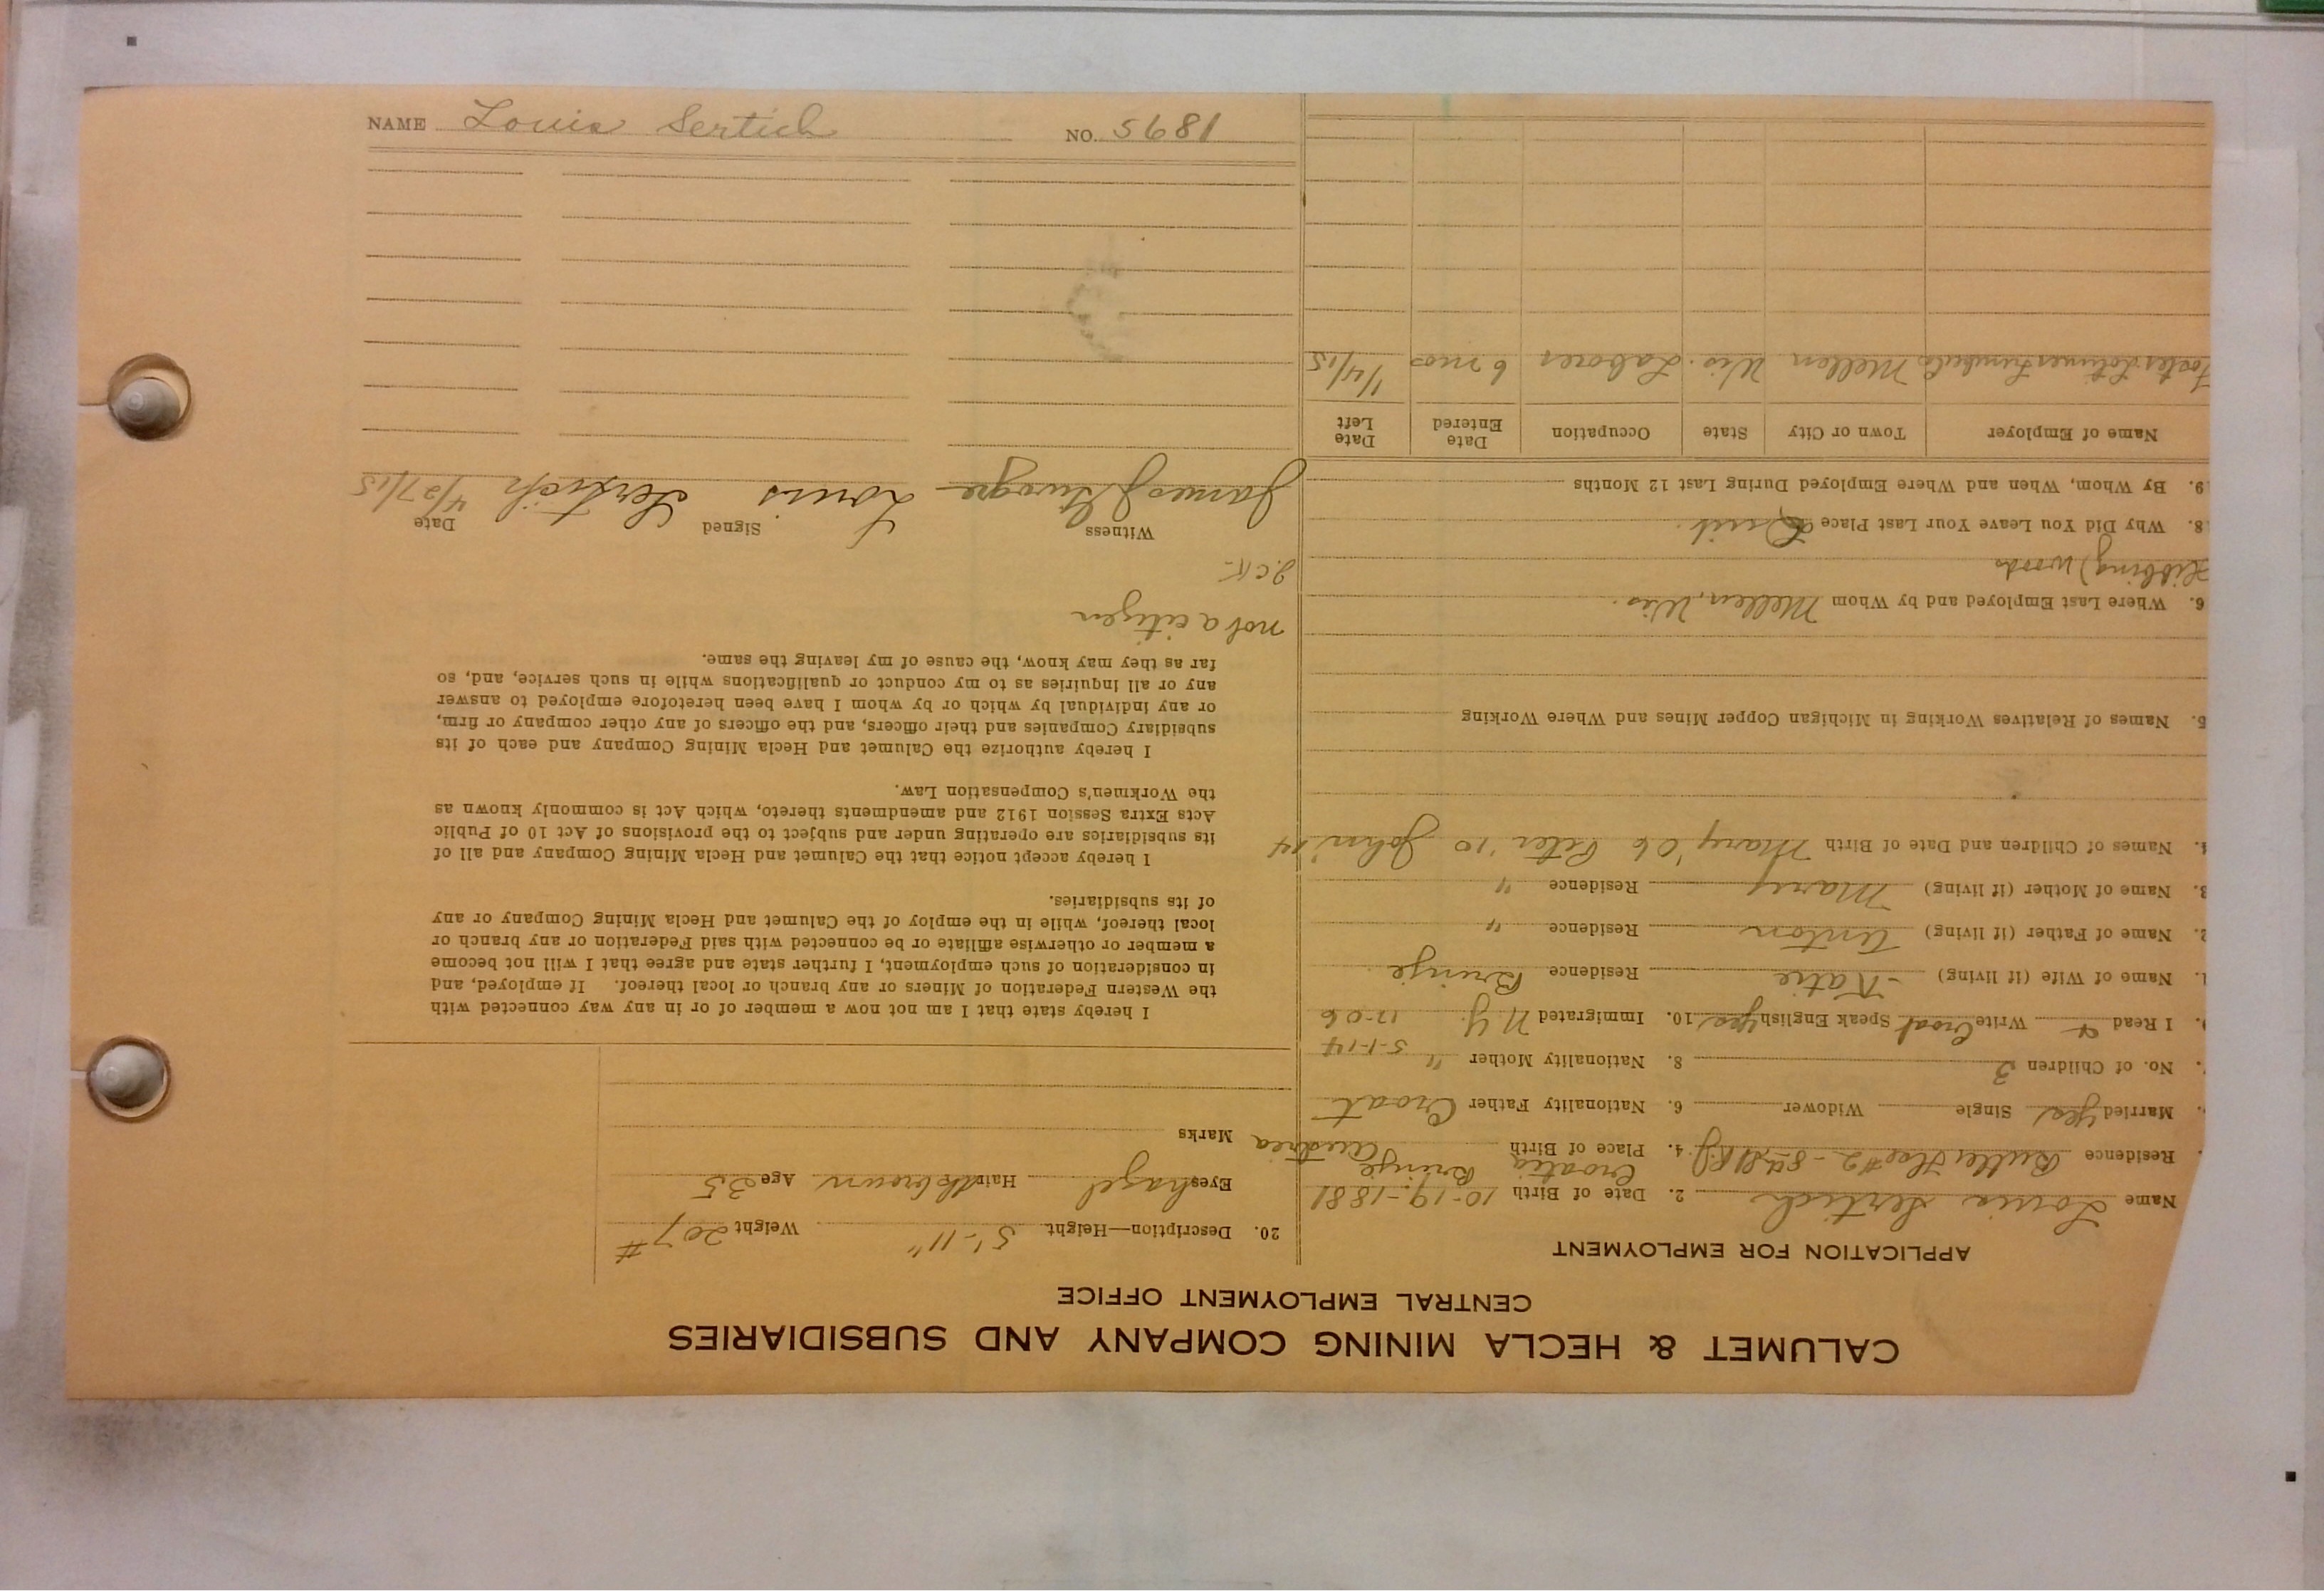 NAME Louis Sertich NO. 5681
CALUMET & HECLA MINING COMPANY AND SUBSIDIARIES
CENTRAL EMPLOYMENT OFFICE
APPLICATION FOR EMPLOYMENT
Name Louis Sertich 2. Date of Birth 10-19-1881
Croatia Brinje
Residence Butler #2 - 8th St 4. Place of Birth Austria
Married yes Single Widower 6. Nationality Father Croat
No. of Children 3 8. Nationality Mother "
5-1-14
I Read & Write Croat Speak English yes 10. Immigrated N.Y. 12-06
Name of Wife (if living) Katie Residence Brinje
2. Name of Father (if living) Anton Residence "
3. Name of Mother (if living) Mary Residence "
4. Names of Children and Date of Birth Mary '06 Peter '10 John '14
5. Names of Relatives Working in Michigan Copper Mines and Where Working
6. Where Last Employed and by Whom Mellen, Wis.
woods
8. Why Did You Leave Your Last Place Quit.
9. By Whom, When and Where Employed During Last 12 Months
Name of Employer Town or City State Occupation Date Entered Date Left
Mellen Wis. Laborer 6 mos 1/4/15
20. Description—Height 5'-11" Weight 207 #
Eyes hazel Hair dk brown Age 35
Marks
I hereby state that I am not now a member of or in any way connected with
the Western Federation of Miners or any branch or local thereof. If employed, and
in consideration of such employment, I further state and agree that I will not become
a member or otherwise affiliate or be connected with said Federation or any branch or
local thereof, while in the employ of the Calumet and Hecla Mining Company or any
of its subsidiaries.
I hereby accept notice that the Calumet and Hecla Mining Company and all of
its subsidiaries are operating under and subject to the provisions of Act 10 of Public
Acts Extra Session 1912 and amendments thereto, which Act is commonly known as
the Workmen's Compensation Law.
I hereby authorize the Calumet and Hecla Mining Company and each of its
subsidiary Companies and their officers, and the officers of any other company or firm,
or any individual by which or by whom I have been heretofore employed to answer
any or all inquiries as to my conduct or qualifications while in such service, and, so
far as they may know, the cause of my leaving the same.
not a citizen
Witness Signed Date
James Louis Sertich 4/27/15